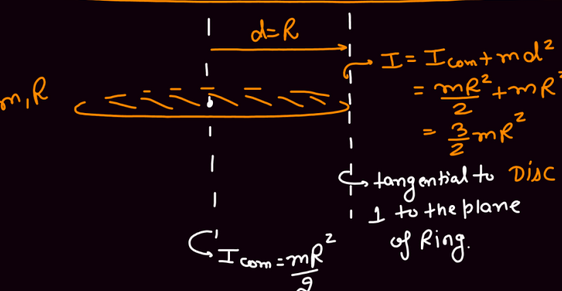 d=R
I = Icom + md²
m,R
= mR²/2 + mR²
= 3/2 mR²
tangential to DISC
⊥ to the plane
of Ring.
Icom = mR²/2